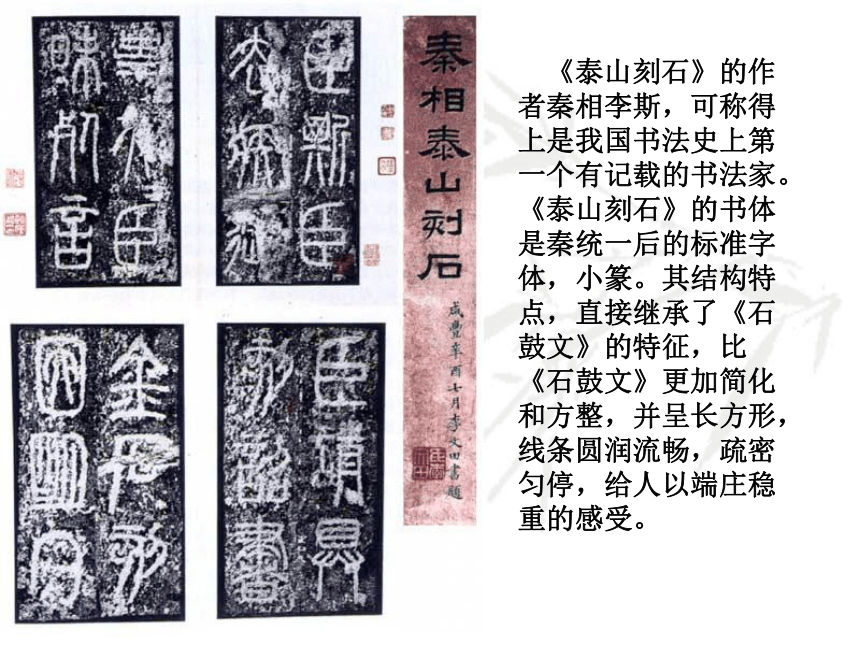 臣斯臣
去疾御
史夫臣
昧死言
臣請具
刻詔書
金石刻
因明白
秦相泰山刻石
咸豐辛酉七月李文田書題
《泰山刻石》的作
者秦相李斯，可称得
上是我国书法史上第
一个有记载的书法家。
《泰山刻石》的书体
是秦统一后的标准字
体，小篆。其结构特
点，直接继承了《石
鼓文》的特征，比
《石鼓文》更加简化
和方整，并呈长方形，
线条圆润流畅，疏密
匀停，给人以端庄稳
重的感受。